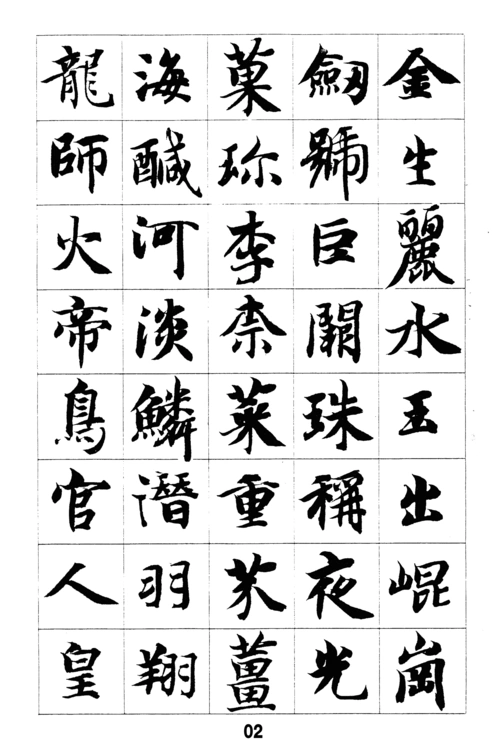 金生麗水玉出崐崗
劒號巨闕珠稱夜光
菓珎李柰菜重芥薑
海醎河淡鱗潛羽翔
龍師火帝鳥官人皇
02